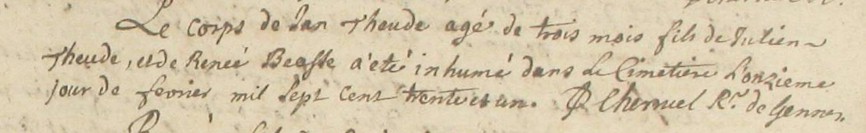 Le corps de Jan Theude agé de trois mois fils de Julien
Theude, et de Renée Beasse a été inhumé dans Le Cimetiere L'onzieme
jour de fevrier mil sept cent trente et un. P Cheruel Rr de Gennes